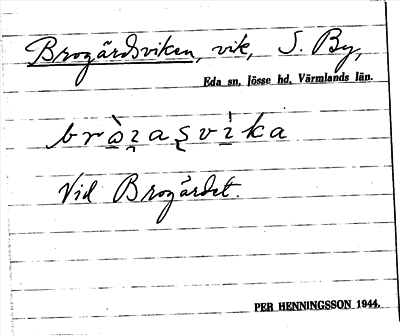 Brogårdsviken, vik, S. By,
Eda sn, Jösse hd, Värmlands län.
Vid Brogårdet.
PER HENNINGSSON 1944.